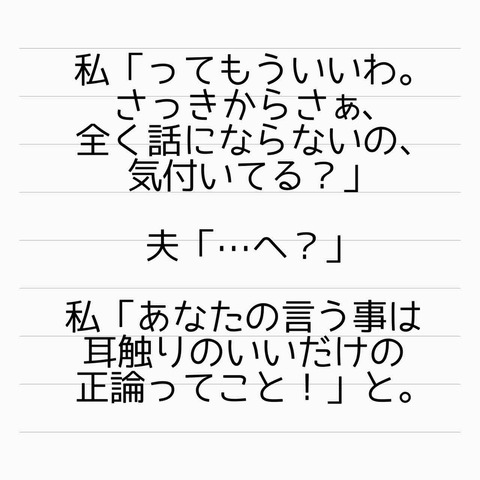 私「ってもういいわ。
さっきからさぁ、
全く話にならないの、
気付いてる？」
夫「…へ？」
私「あなたの言う事は
耳触りのいいだけの
正論ってこと！」と。